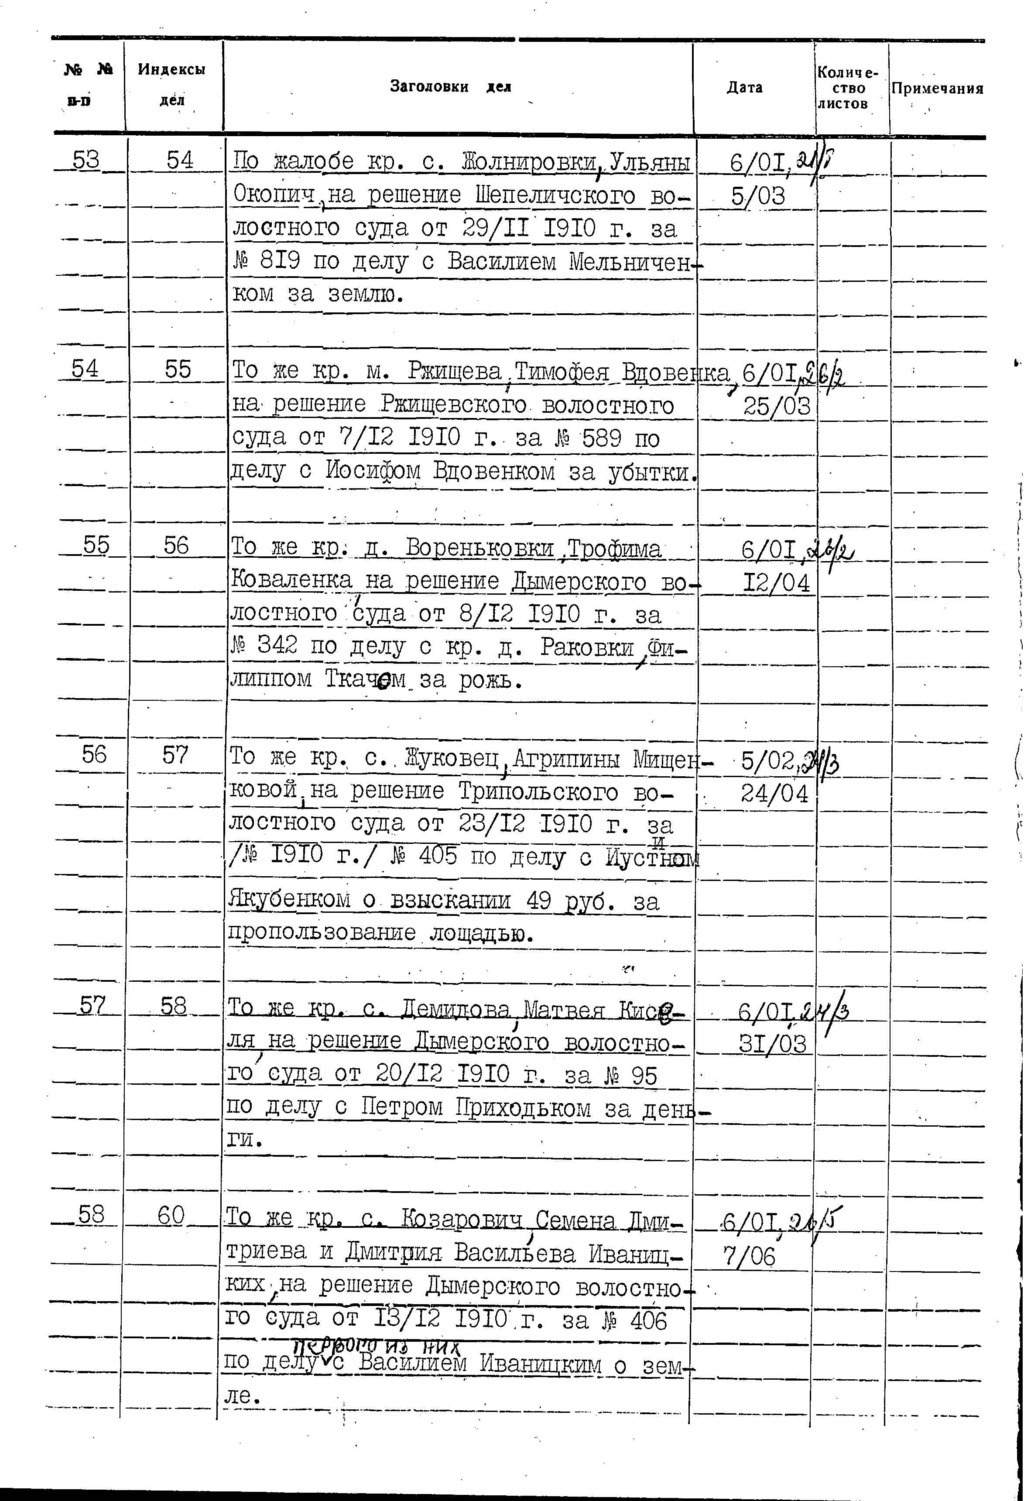 № № п-п Индексы дел Заголовки дел Дата Количе-ство листов Примечания
53 54 По жалобе кр. с. Жолнировки, Ульяны 6/01,
Окопич, на решение Шепеличского во- 5/03
лостного суда от 29/II 1910 г. за
№ 819 по делу с Василием Мельничен-
ком за землю.
54 55 То же кр. м. Ржищева, Тимофея Вдовенка, 6/01, 26/2
на решение Ржищевского волостного 25/03
суда от 7/12 1910 г. за № 589 по
делу с Иосифом Вдовенком за убытки.
55 56 То же кр. д. Вореньковки, Трофима 6/01, 26/2
Коваленка, на решение Дымерского во- 12/04
лостного суда от 8/12 1910 г. за
№ 342 по делу с кр. д. Раковки, Фи-
липпом Ткачом за рожь.
56 57 То же кр. с. Жуковец, Агрипины Мищен- 5/02,
ковой, на решение Трипольского во- 24/04
лостного суда от 23/12 1910 г. за
/№ 1910 г./ № 405 по делу с Иустином
Якубенком о взыскании 49 руб. за
пропользование лощадью.
57 58 То же кр. с. Демидова, Матвея Кисе- 6/01, 24/3
ля, на решение Дымерского волостно- 31/03
го суда от 20/12 1910 г. за № 95
по делу с Петром Приходьком за день-
ги.
58 60 То же кр. с. Козарович, Семена Дми- 6/01, 26/5
триева и Дмитрия Васильева Иваниц- 7/06
ких, на решение Дымерского волостно-
го суда от 13/12 1910 г. за № 406
первого из них
по делу с Василием Иваницким о зем-
ле.